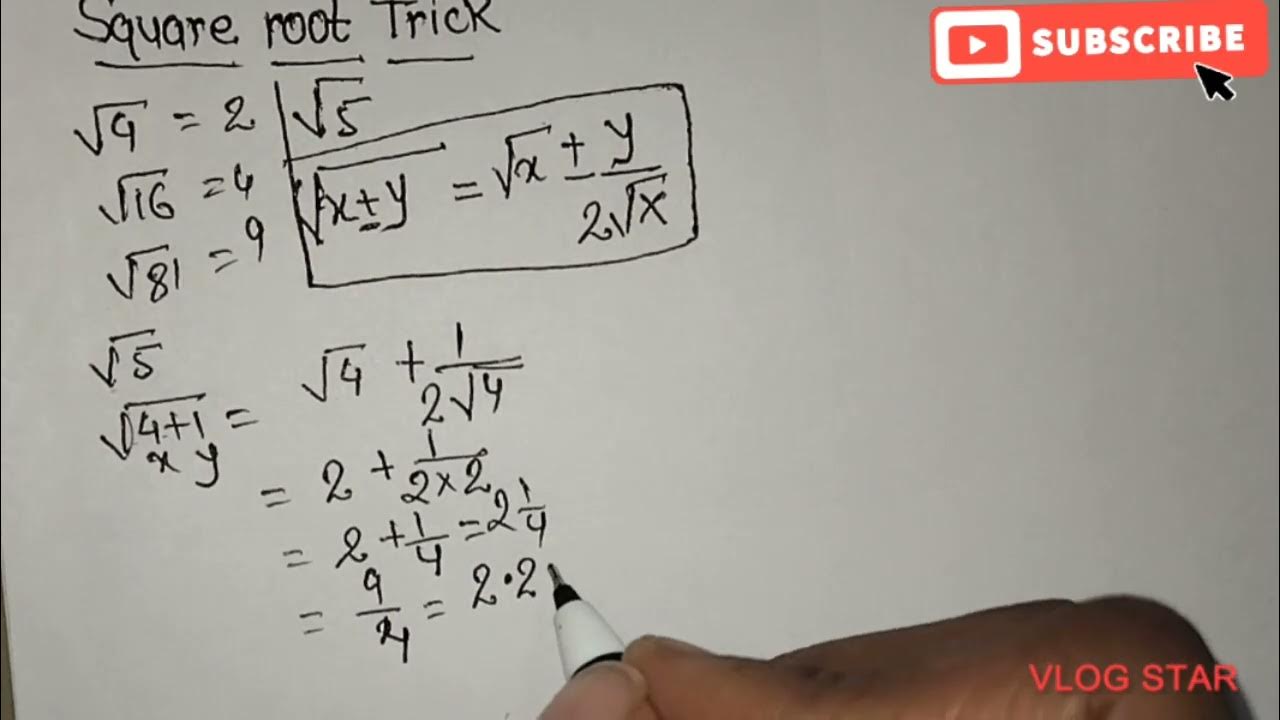 Square root Trick
SUBSCRIBE
√4 = 2
√5
√16 = 4
√x±y = √x ± y/2√x
√81 = 9
√5
√4+1 = √4 + 1/2√4
x y
= 2 + 1/2×2
= 2 + 1/4 = 2 1/4
= 9/4 = 2.2
VLOG STAR